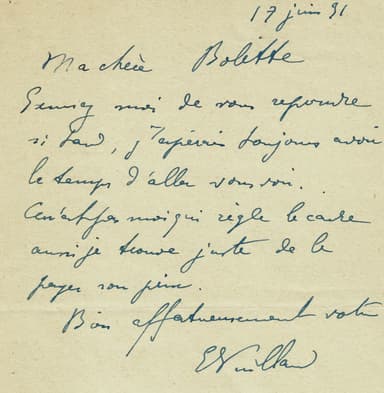 17 juin 91
Ma chère Bolette
Excusez moi de vous repondre
si tard, j'espérais toujours avoir
le temps d'aller vous voir.
Ce n'est pas moi qui règle le cadre
aussi je trouve juste de le
payer son prix.
Bien affectueusement votre
EVuillard